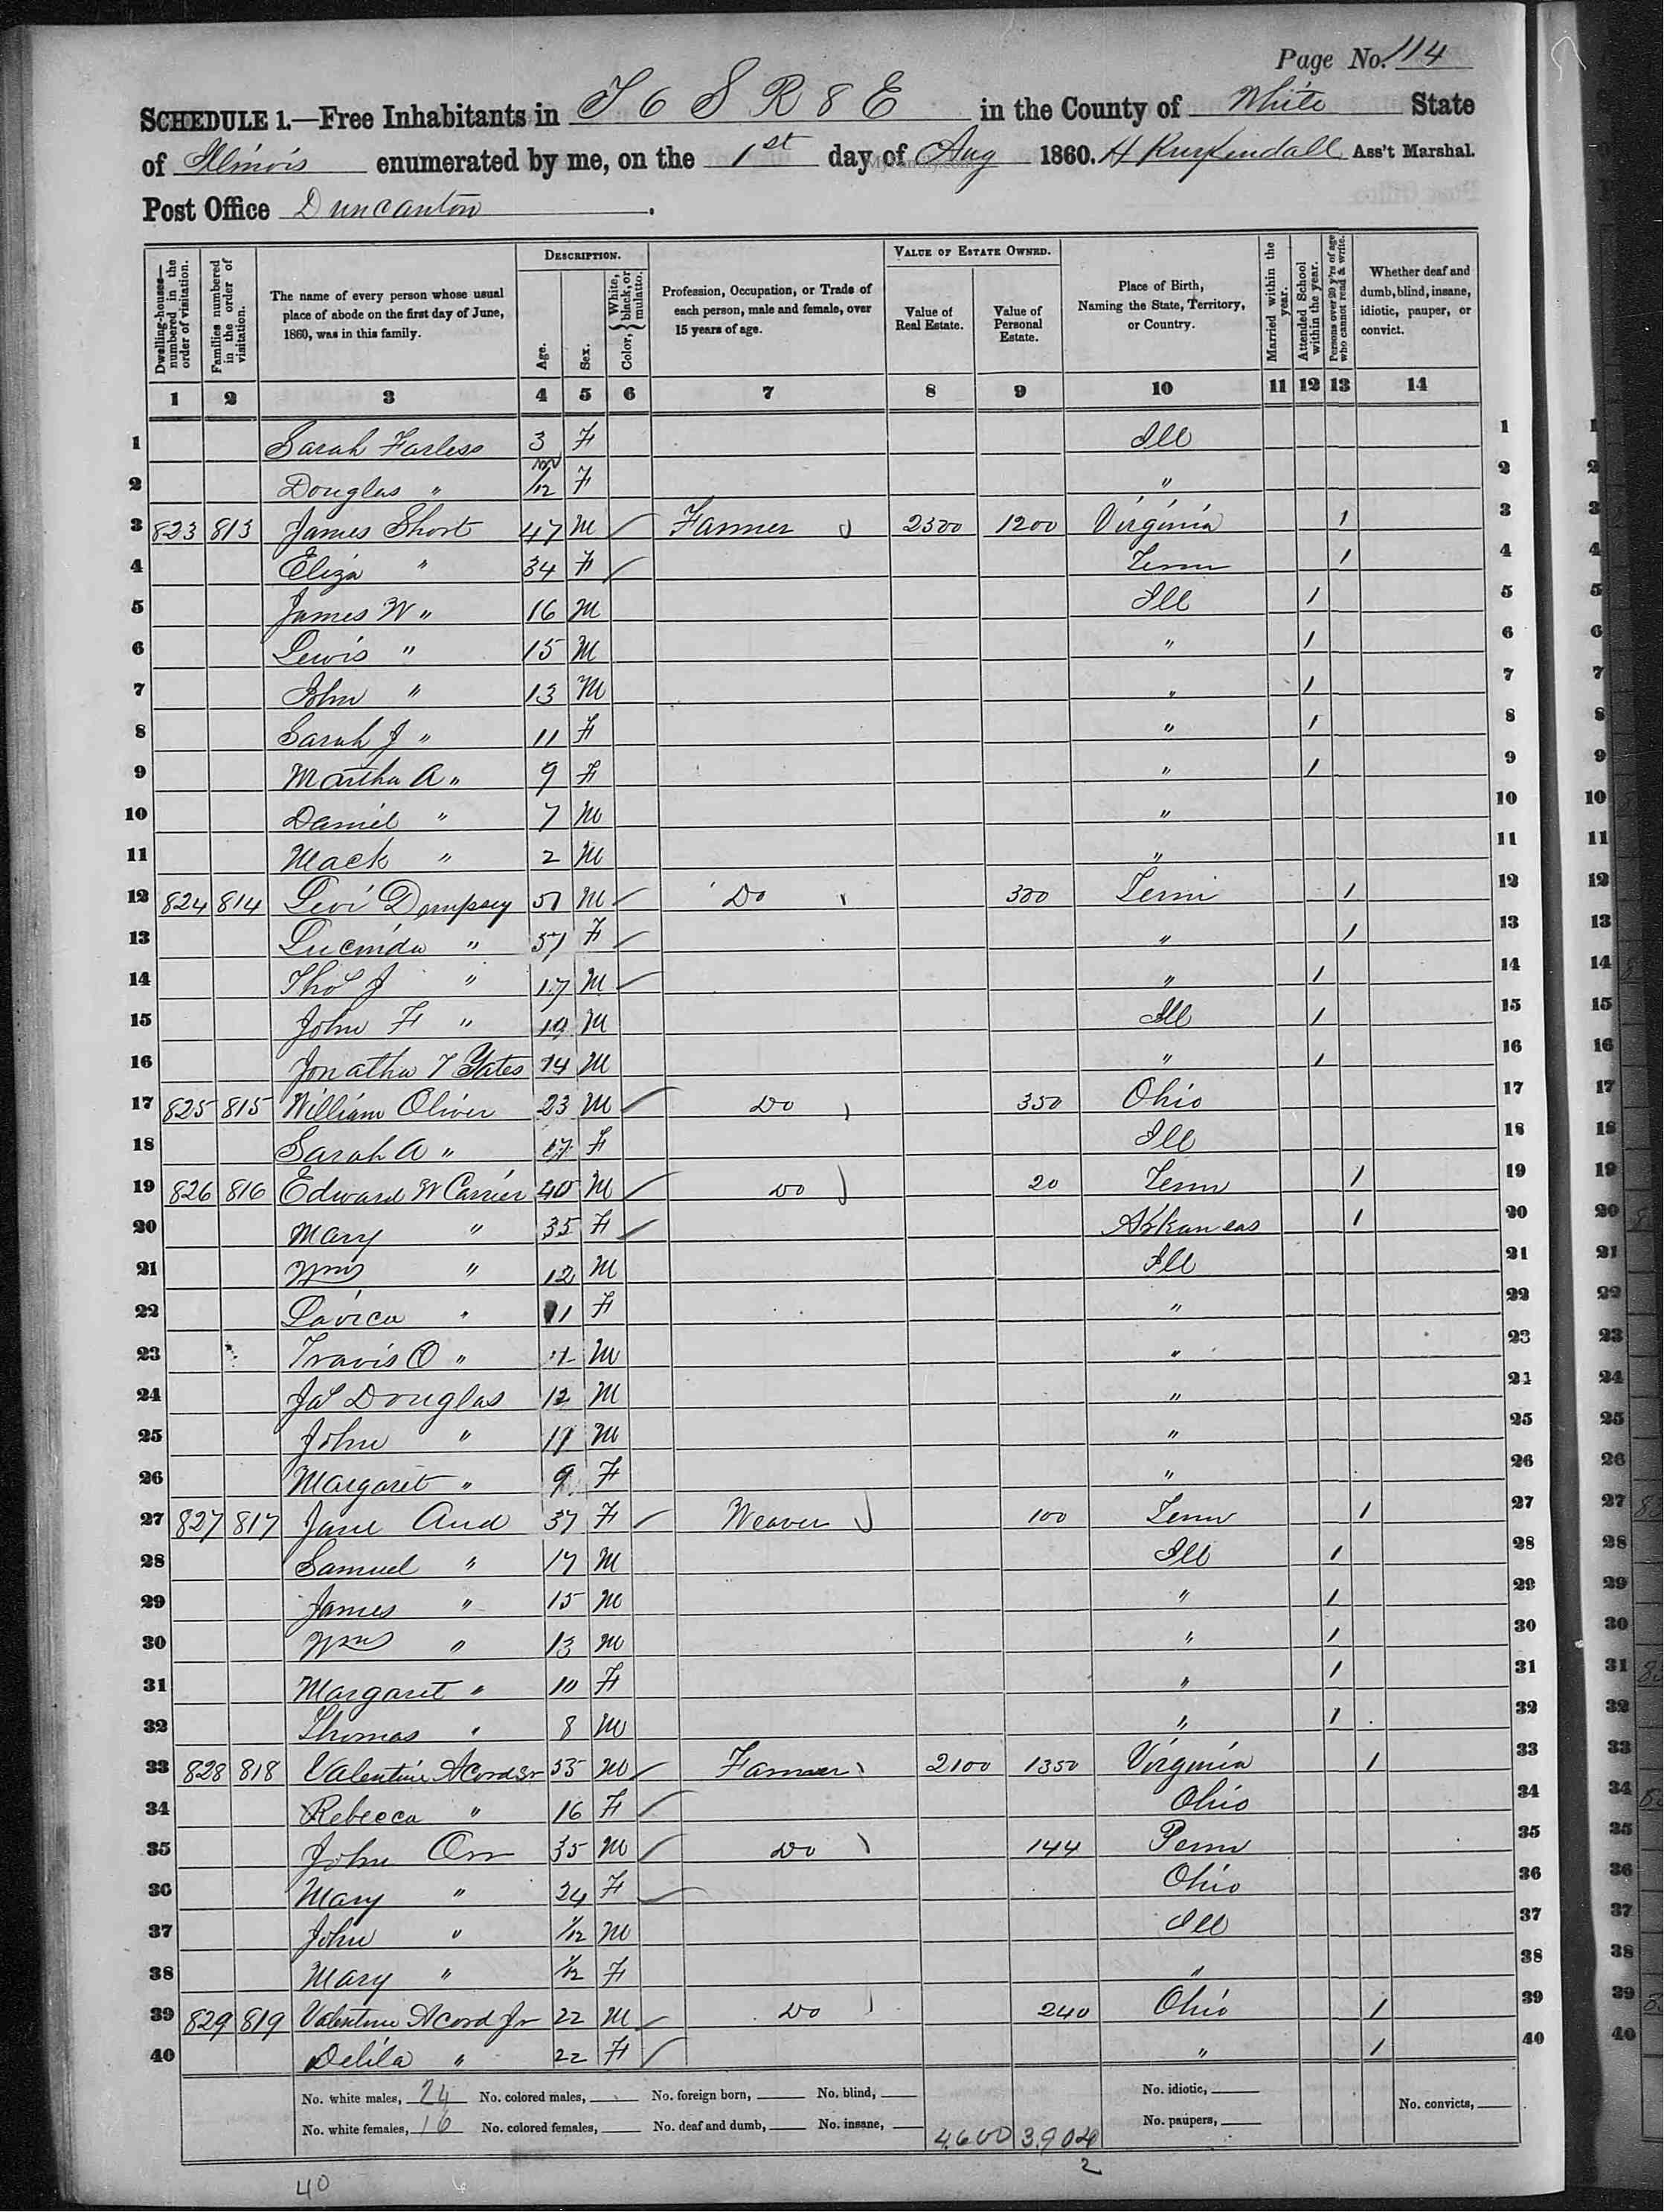 Page No. 114
SCHEDULE 1.—Free Inhabitants in T 6 S R 8 E in the County of White State
of Illinois enumerated by me, on the 1st day of Aug 1860. H Kuykendall Ass't Marshal.
Post Office Duncanton.
Dwelling-houses— numbered in the order of visitation.
Families numbered in the order of visitation.
The name of every person whose usual place of abode on the first day of June, 1860, was in this family.
DESCRIPTION.
Age.
Sex.
Color, { White, black, or mulatto.
Profession, Occupation, or Trade of each person, male and female, over 15 years of age.
VALUE OF ESTATE OWNED.
Value of Real Estate.
Value of Personal Estate.
Place of Birth, Naming the State, Territory, or Country.
Married within the year.
Attended School within the year.
Persons over 20 y'rs of age who cannot read & write.
Whether deaf and dumb, blind, insane, idiotic, pauper, or convict.
1 2 3 4 5 6 7 8 9 10 11 12 13 14
1 Sarah Farless 3 F Ill 1
2 Douglas " /12 F " 2
3 823 813 James Short 47 M / Farmer 2300 1200 Virginia 1 3
4 Eliza " 34 F / Tenn 1 4
5 James W " 16 M Ill 1 5
6 Lewis " 15 M " 1 6
7 John " 13 M " 1 7
8 Sarah J " 11 F " 1 8
9 Martha A " 9 F " 1 9
10 Daniel " 7 M " 10
11 Mack " 2 M " 11
12 824 814 Levi Dempsey M / Do 300 Tenn 1 12
13 Lucinda " F / " 1 13
14 Thos J " 17 M / " 1 14
15 John F " M Ill 1 15
16 Jonathan T Yates 14 M " 1 16
17 825 815 William Oliver 23 M / Do 350 Ohio 17
18 Sarah A " 17 F Ill 18
19 826 816 Edward W Carrier 40 M / Do 20 Tenn 1 19
20 Mary " 35 F / Arkansas 1 20
21 Wm " 12 M Ill 21
22 Lovica " F " 22
23 Travis O " M " 23
24 Jas Douglas 12 M " 24
25 John " M " 25
26 Margaret " 9 F " 26
27 827 817 Jane Aud 37 F / Weaver 100 Tenn 1 27
28 Samuel " 17 M Ill 1 28
29 James " 15 M " 1 29
30 Wm " 13 M " 1 30
31 Margaret " 10 F " 1 31
32 Thomas " 8 M " 1 32
33 828 818 Valentine Acord Sr 55 M / Farmer 2100 1350 Virginia 1 33
34 Rebecca " 16 F / Ohio 34
35 John Orr 35 M / Do 144 Penn 35
36 Mary " 24 F / Ohio 36
37 John " 1/12 M Ill 37
38 Mary " 1/12 F " 38
39 829 819 Valentine Acord Jr 22 M / Do 240 Ohio 1 39
40 Delila " 22 F / " 1 40
No. white males, 24 No. colored males, No. foreign born, No. blind, No. idiotic,
No. white females, 16 No. colored females, No. deaf and dumb, No. insane, 4600 3904 No. paupers, No. convicts,
2
40